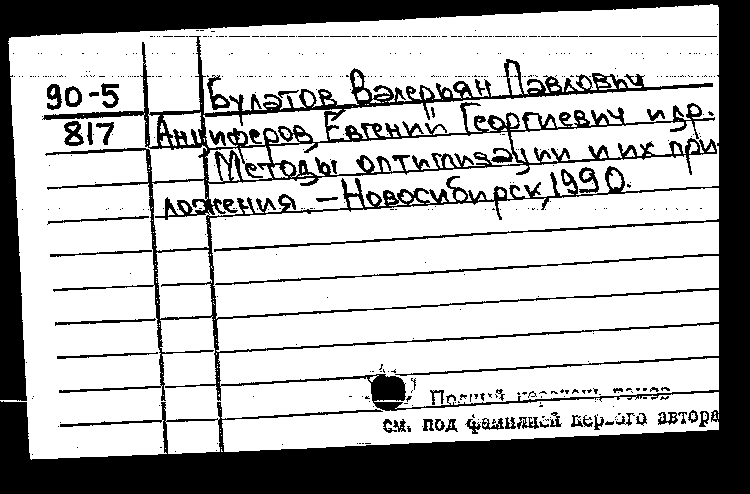 90-5 Булатов Валерьян Павлович
817 Анциферов, Евгений Георгиевич и др.
Методы оптимизации и их при-
ложения. - Новосибирск, 1990.
Полный перечень томов
см. под фамилией первого автора